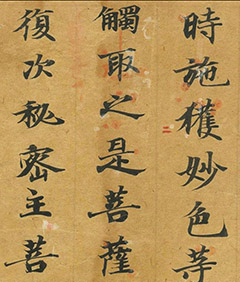 時施獲妙色等
觸取之是菩薩
復次秘密主菩